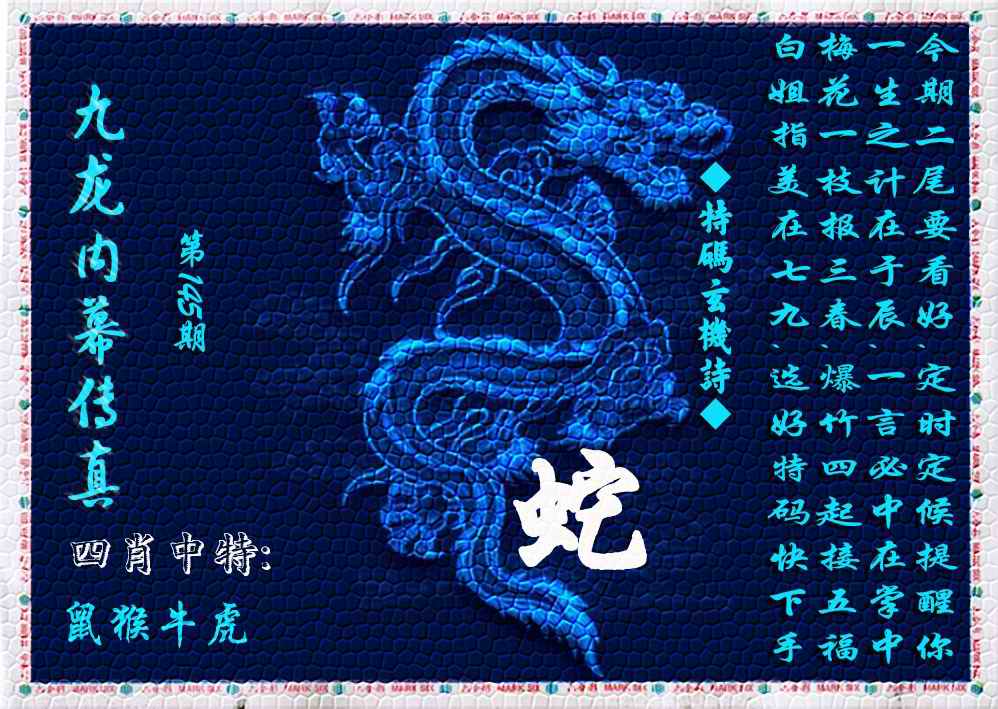 九龙内幕传真
第145期
四肖中特:
鼠猴牛虎
蛇
◆特碼玄機詩◆
今期二尾要看好、定时定候提醒你
一生之计在于辰、一言必中在掌中
梅花一枝报三春、爆竹四起接五福
白姐指美在七九、选好特码快下手